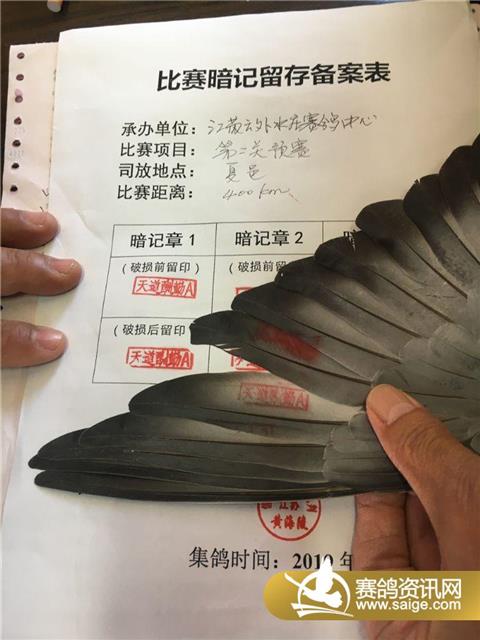 比赛暗记留存备案表
承办单位：江苏云外水庄赛鸽中心
比赛项目：第二关预赛
司放地点：夏邑
比赛距离：400km
暗记章1 暗记章2 暗
(破损前留印) (破损前留印)
天道酬勤A
(破损后留印)
天道酬勤A
天道酬勤A
江苏
黄海陵
集鸽时间：2019年
赛鸽资讯网
www.saige.com